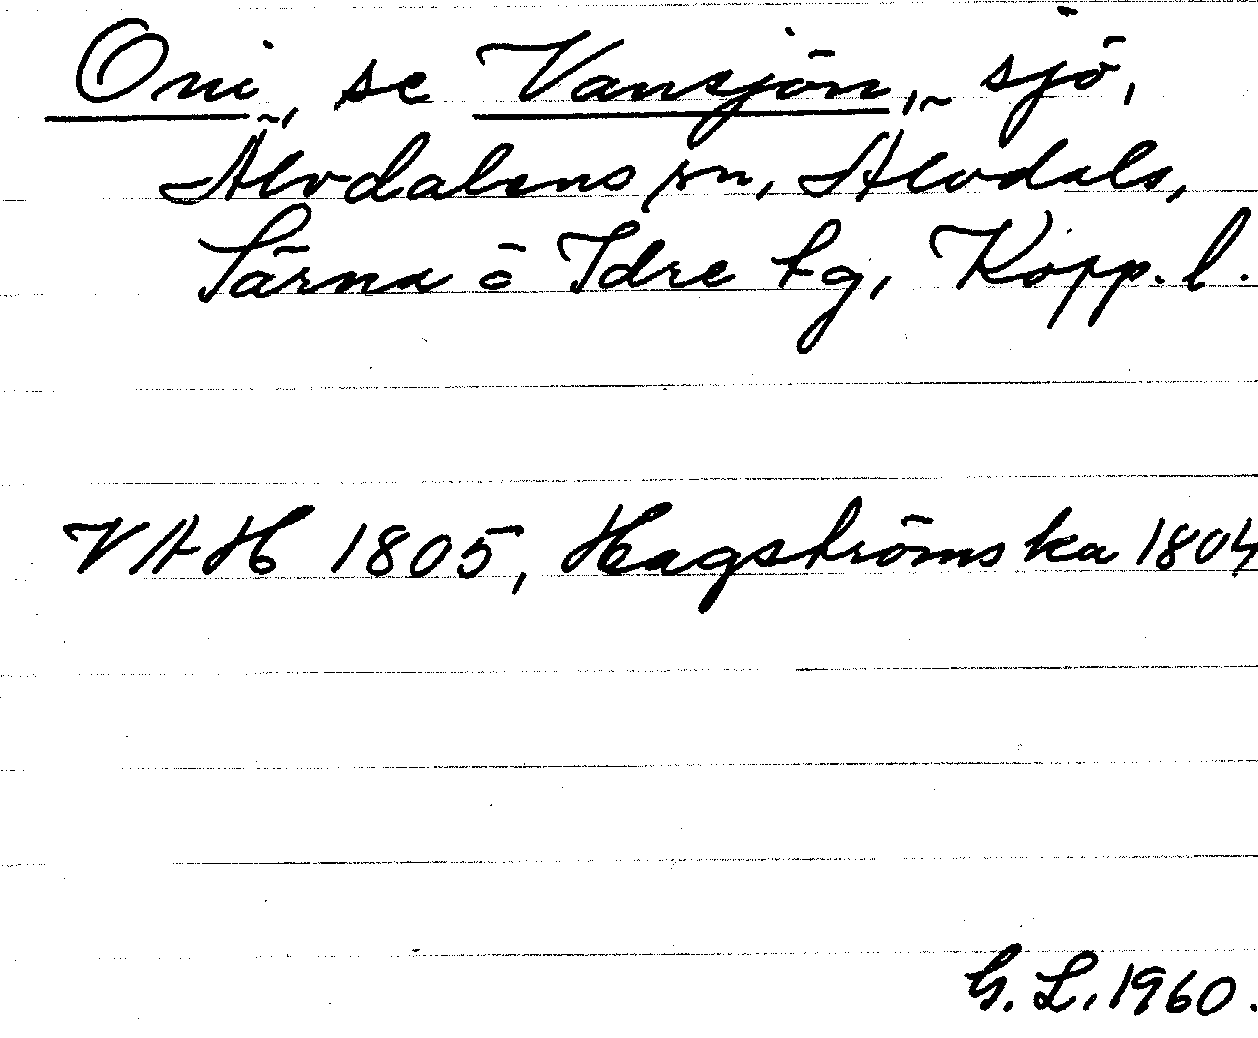 Oni, se Vansjön, sjö,
Älvdalens sn, Älvdals,
Särna o Idre tg, Kopp. l.
VAH 1805, Hagströmska 1804
G. L. 1960.